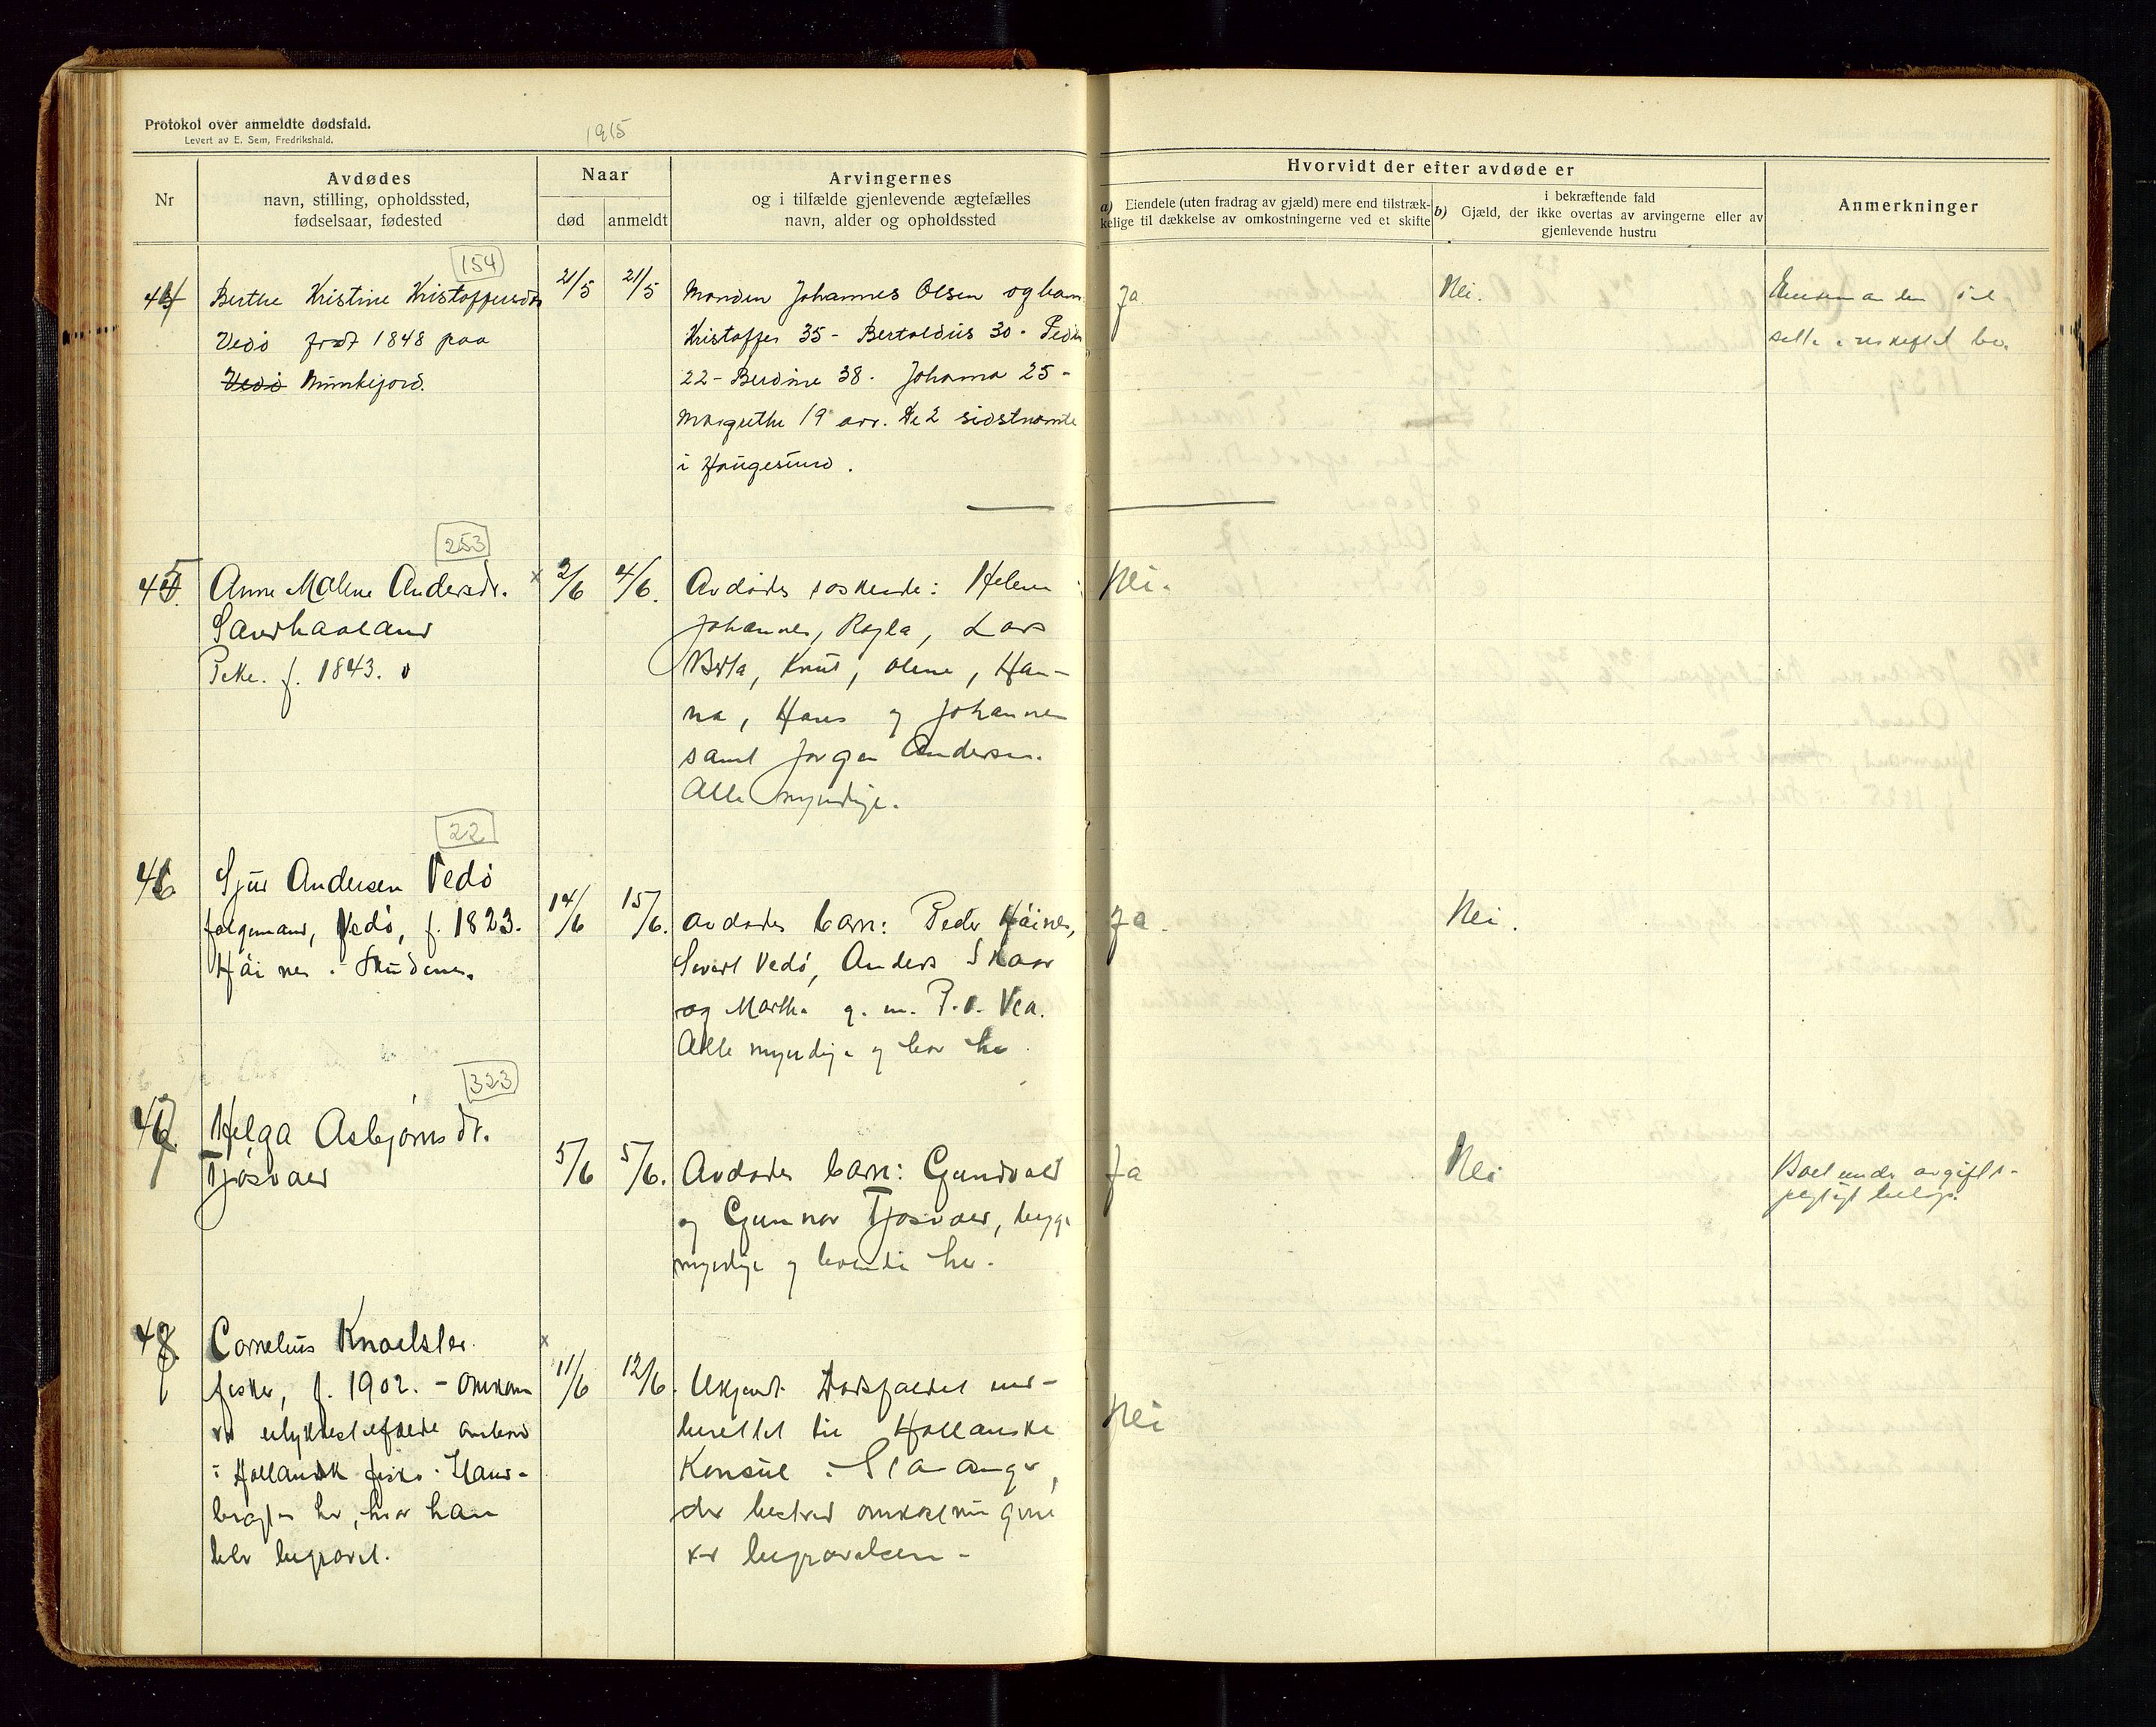 Protokol over anmeldte dødsfald.
Levert av E. Sem, Fredrikshald.
1915
Nr
Avdødes
navn, stilling, opholdssted,
fødselsaar, fødested
Naar
død
anmeldt
Arvingernes
og i tilfælde gjenlevende ægtefælles
navn, alder og opholdssted
Hvorvidt der efter avdøde er
a) Eiendele (uten fradrag av gjæld) mere end tilstræk-
kelige til dækkelse av omkostningerne ved et skifte
i bekræftende fald
b) Gjæld, der ikke overtas av arvingerne eller av
gjenlevende hustru
Anmerkninger
154
44
Berthe Kristine Kristoffersdtr
Vedö født 1848 paa
Vedö Munkejord.
21/5
21/5
Manden Johannes Olsen og barn
Kristoffer 35 - Bertoldus 30 - Peder
22 - Berdine 38. Johanna 25 -
Margrethe 19 aar. De 2 sidstnævnte
i Haugesund.
Ja
Nei.
253
45.
Anne Malene Andersdr.
Sandhaaland
Pike. f. 1843.
2/6
4/6.
Avdødes søskende: Helene
Johannes, Ragla, Lars
Berta, Knut, Olene, Han-
na, Hans og Johannes
samt Jørgen Andersen.
Alle myndige.
Nei.
22
46
Sjur Andersen Vedö
følgemand, Vedö, f. 1823.
Håines i Skudenes.
14/6
15/6.
Avdødes barn: Peder Håines,
Sivert Vedö, Anders Skaar
og Marthe g. m. P. O. Vea.
Alle myndige og bor her
Ja.
Nei.
323
47
Helga Asbjørnsdr.
Tjøsvold
5/6
5/6.
Avdødes barn: Gundvald
og Gunnar Tjøsvold, begge
myndige og boende her.
Ja
Nei
Boet under avgifts-
pligtigt beløp.
48
Cornelius
fisker, f. 1902. - Omkom
ved ulykkestilfælde ombord
i Hollandsk fisker. Hans
her, hvor han
blev begravet.
11/6
12/6.
Ukjendt. Dødsfaldet ind-
berettet til Hollanske
Konsul i Stavanger,
der bestred omkostningene
ved begravelsen -
Nei